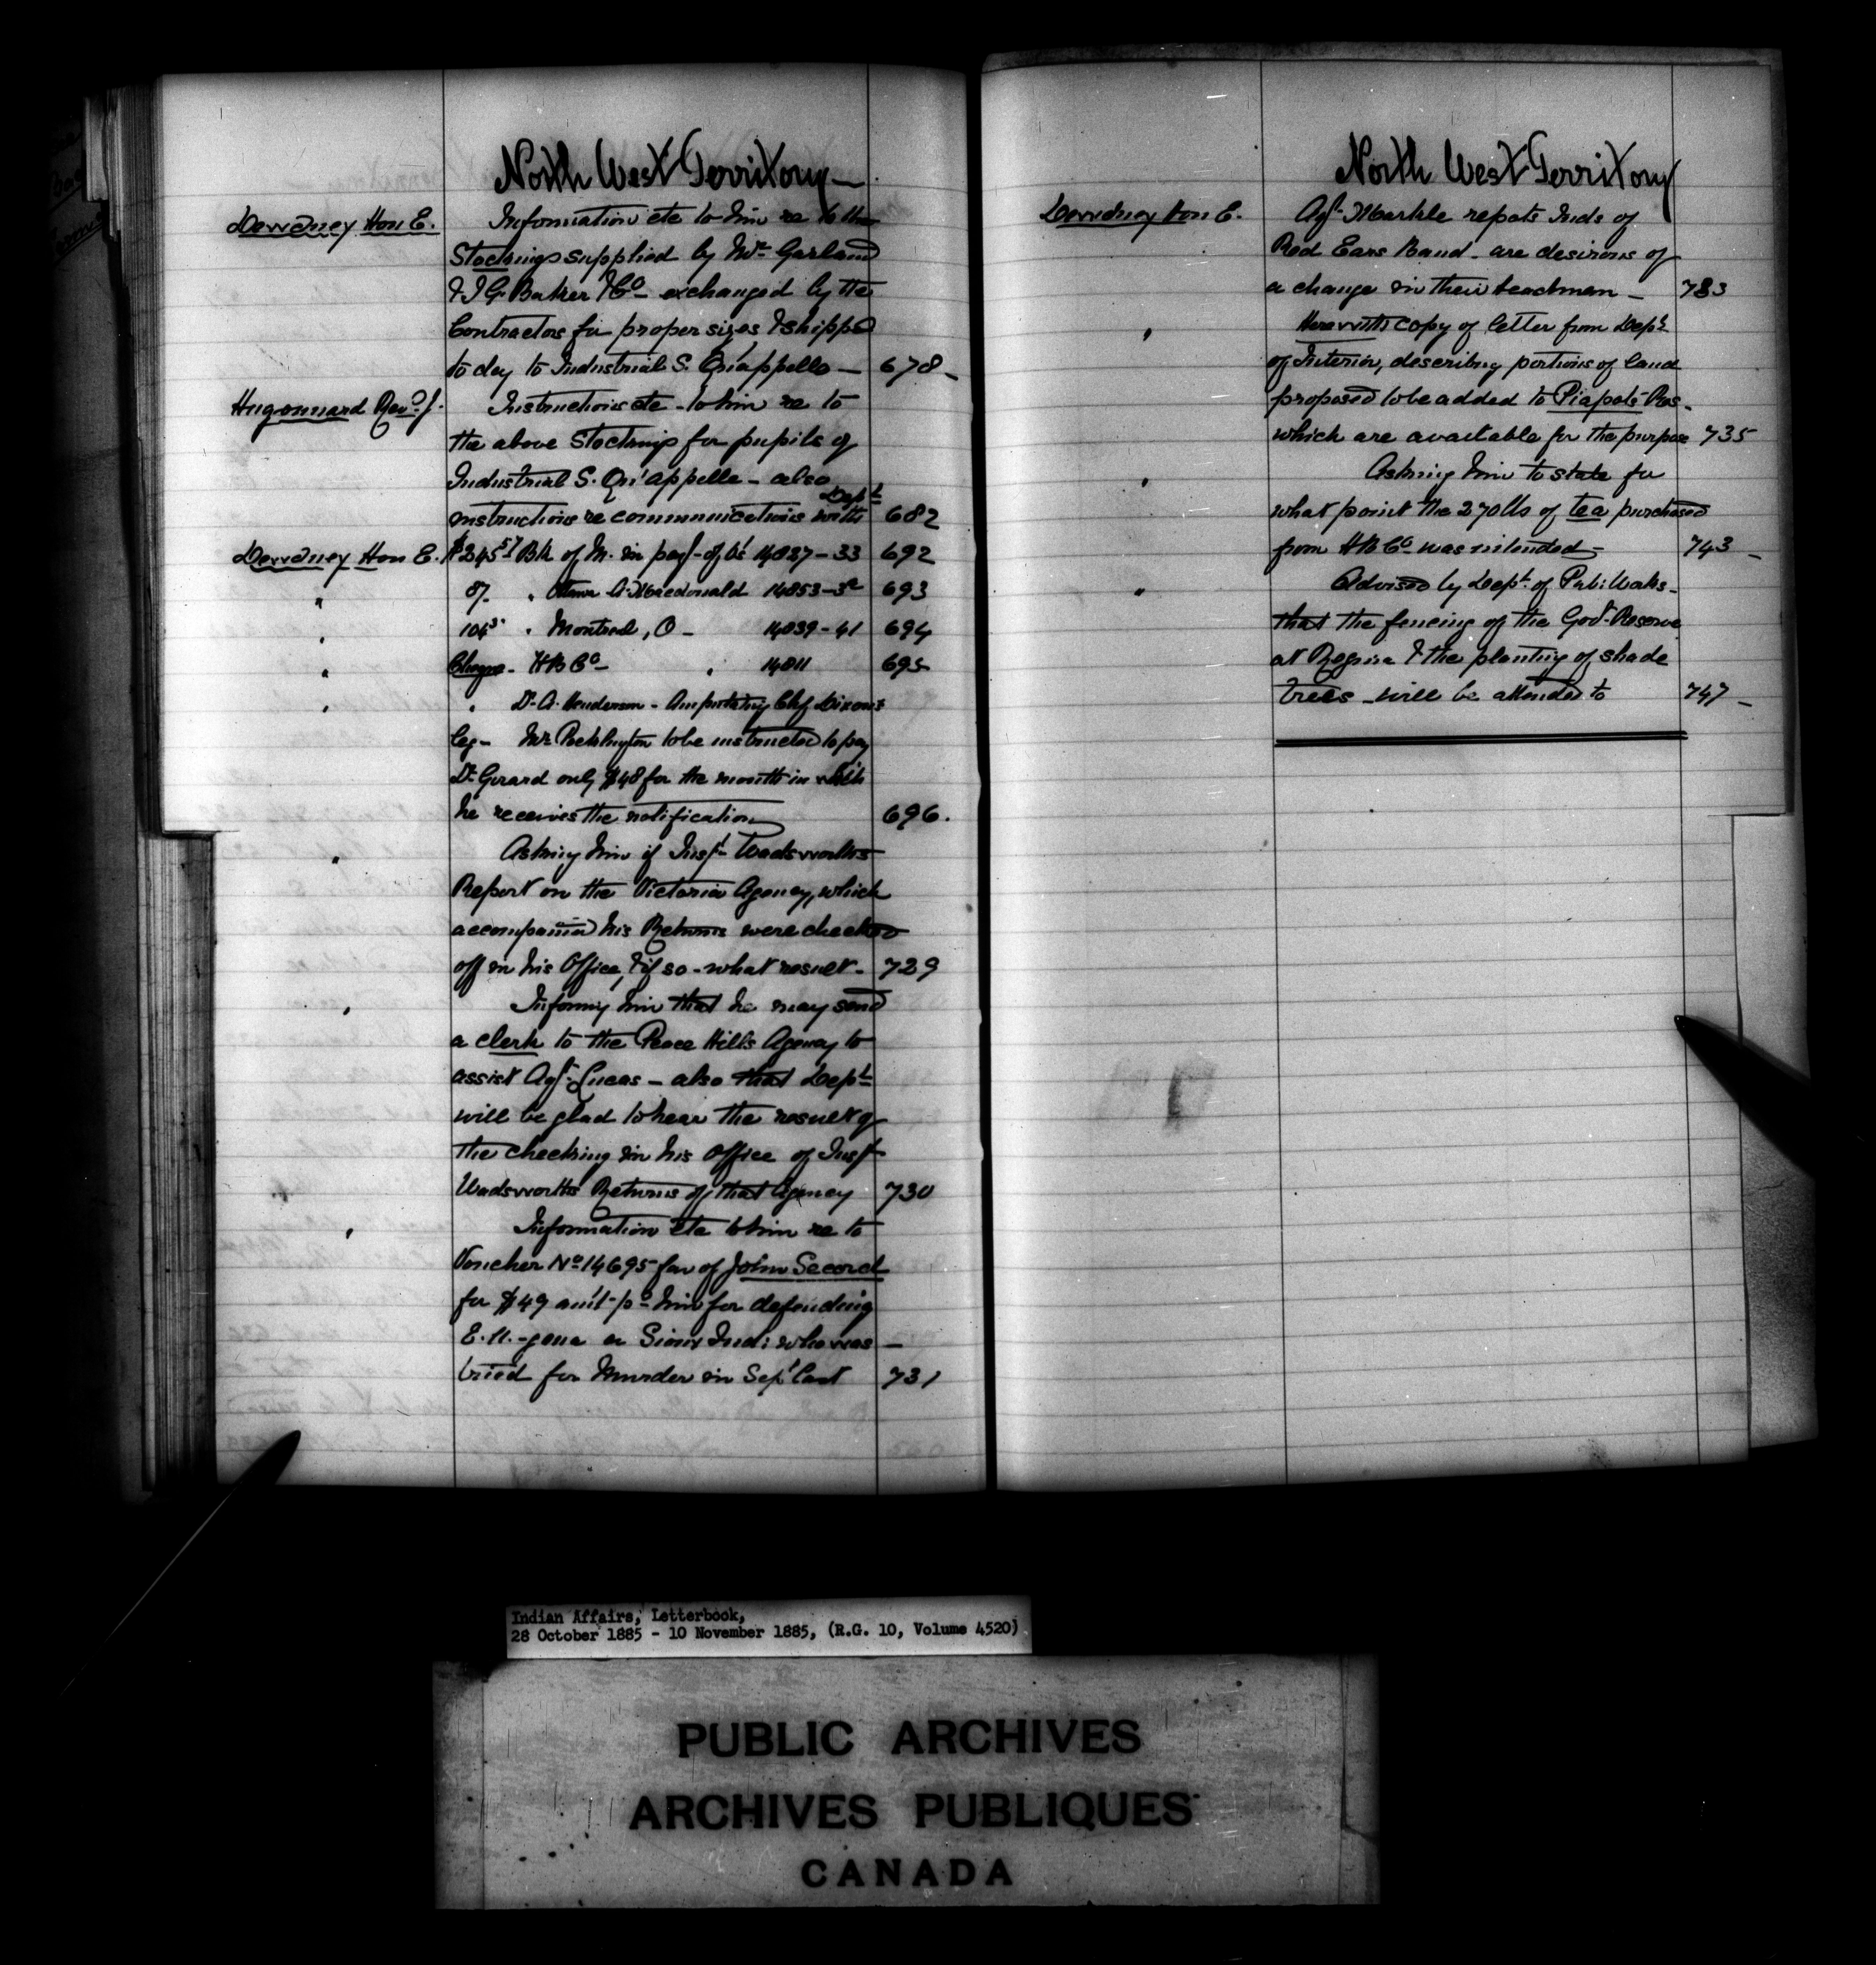 North West Territory —
Dewdney Hon E. Information etc to him re to the
Stockings supplied by Mr Garland
& I G. Baker & Co - exchanged by the
Contractors for proper sizes & shipped
to day to Industrial S. Qu'appelle — 678 -
Hugonnard Revd J. Instructions etc - to him re to
the above Stockings for pupils of
Industrial S. Qu'appelle - also
instructions re communications with Dept 682
Dewdney Hon E. $245 57 Bk of M. in payt - of Vs 14037-33 692
" 87. " Ottawa A. Macdonald 14053-5 693
" 104 " Montreal, O - 14039-41 694
" Cheque - H B Co - " 14011 695
" " Dr. A. Henderson - Amputating Chf Dixons
leg - Mr to be instructed to pay
Dr Girard only $48 for the month in which
he receives the notification 696.
" Asking him if Inspt Wadsworths
Report on the Victoria Agency, which
accompanied his Returns were checked
off in his Office, & if so - what result - 729
" Informg him that he may send
a clerk to the Peace Hills Agency to
assist Agt. Lucas - also that Dept
will be glad to hear the result of
the checking in his Office of Inspt
Wadsworths Returns of that Agency 730
" Information etc to him re to
Voucher No 14695 fav of John Secord
for $49 am't - pd him for defending
a Sioux Indn who was —
tried for Murder in Sept last 731
North West Territory
Dewdney Hon E. Agt. Markle repots Inds of
Red Ears Band - are desirous of
a change in their headman - 733
" Herewith copy of letter from Dept
of Interior, describing portions of land
proposed to be added to Piapots Res -
which are available for the purpose 735
" Asking him to state for
what point the 270 lbs of tea purchased
from H B Co was intended - 743 -
" Advised by Dept. of Pub: Works -
that the fencing of the Govt. Reserve
at Regina & the planting of shade
trees - will be attended to 747 -
Indian Affairs, Letterbook,
28 October 1885 - 10 November 1885, (R.G. 10, Volume 4520)
PUBLIC ARCHIVES
ARCHIVES PUBLIQUES
CANADA